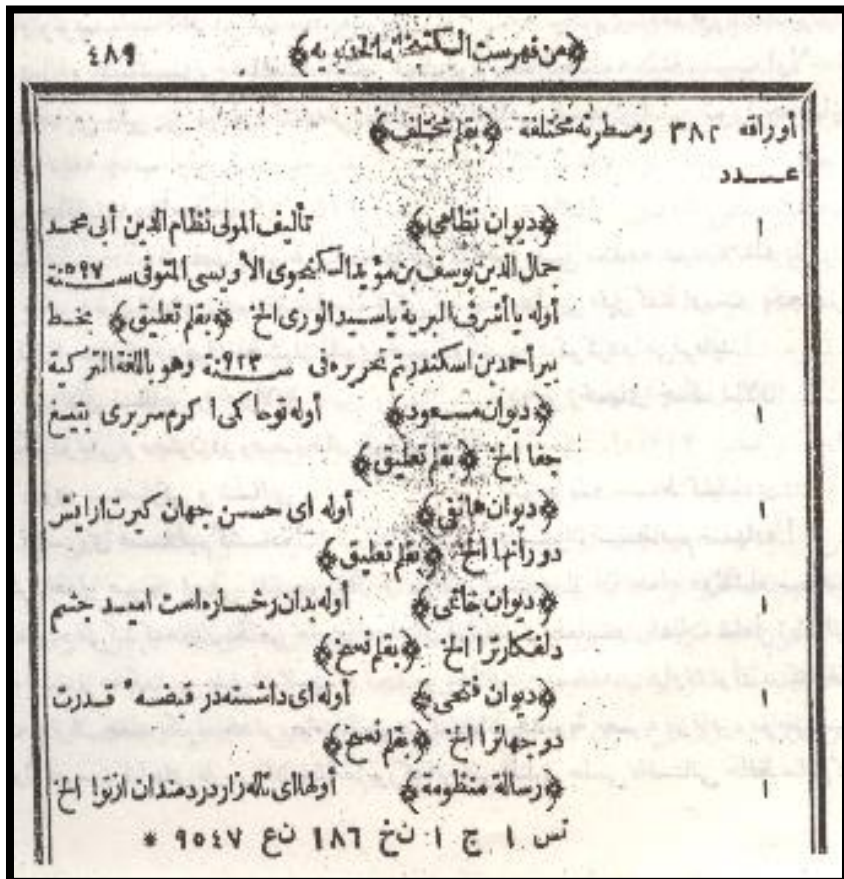 ﴿من فهرست الكتبخانه الخديويه﴾ ٤٨٩
أوراقه ٣٨٢ ومسطرته مختلفه ﴿بقلم مختلف﴾
عـــدد
١ ﴿ديوان نظامى﴾ تأليف المولى نظام الدين أبى محمد
جمال الدين يوسف بن مؤيد الكنجوى الأويسى المتوفى سنة ٥٩٧
أوله يا أشرف البرية يا سيد الورى الخ ﴿بقلم تعليق﴾ بخط
بير أحمد بن اسكندر تم تحريره فى سنة ٩٢٣ وهو باللغة التركية
١ ﴿ديوان مسعود﴾ أوله توحا كى ا كرم سربرى بتيغ
جفا الخ ﴿بقلم تعليق﴾
١ ﴿ديوان هاتفى﴾ أوله اى حسن جهان كيرت ارايش
دورانها الخ ﴿بقلم تعليق﴾
١ ﴿ديوان خاتمى﴾ أوله بدان رخساره است اميد جسم
دلفكار ترا الخ ﴿بقلم نسخ﴾
١ ﴿ديوان فتحى﴾ أوله اى داشته در قبضه قدرت
در جهانرا الخ ﴿بقلم نسخ﴾
١ ﴿رسالة منظومة﴾ أولها اى ناله زار دردمندان ازتو الخ
نس ١ ج ١ نخ ١٨٦ نع ٩٥٤٧ *